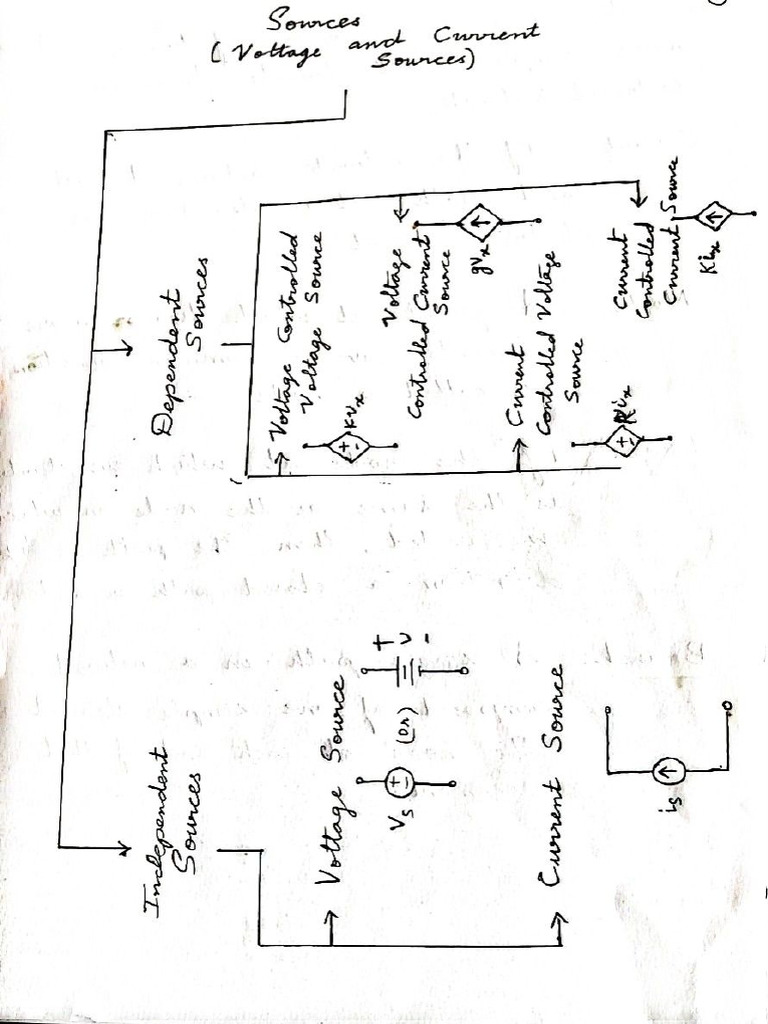 Sources
(Voltage and Current
Sources)
Independent
Sources
Voltage Source
Vs
+
-
(or)
+
V
-
Current Source
is
Dependent
Sources
Voltage Controlled
Voltage Source
+
-
KVx
Voltage
Controlled Current
Source
gVx
Current
Controlled Voltage
Source
+
-
Current
Controlled
Current Source
Kix